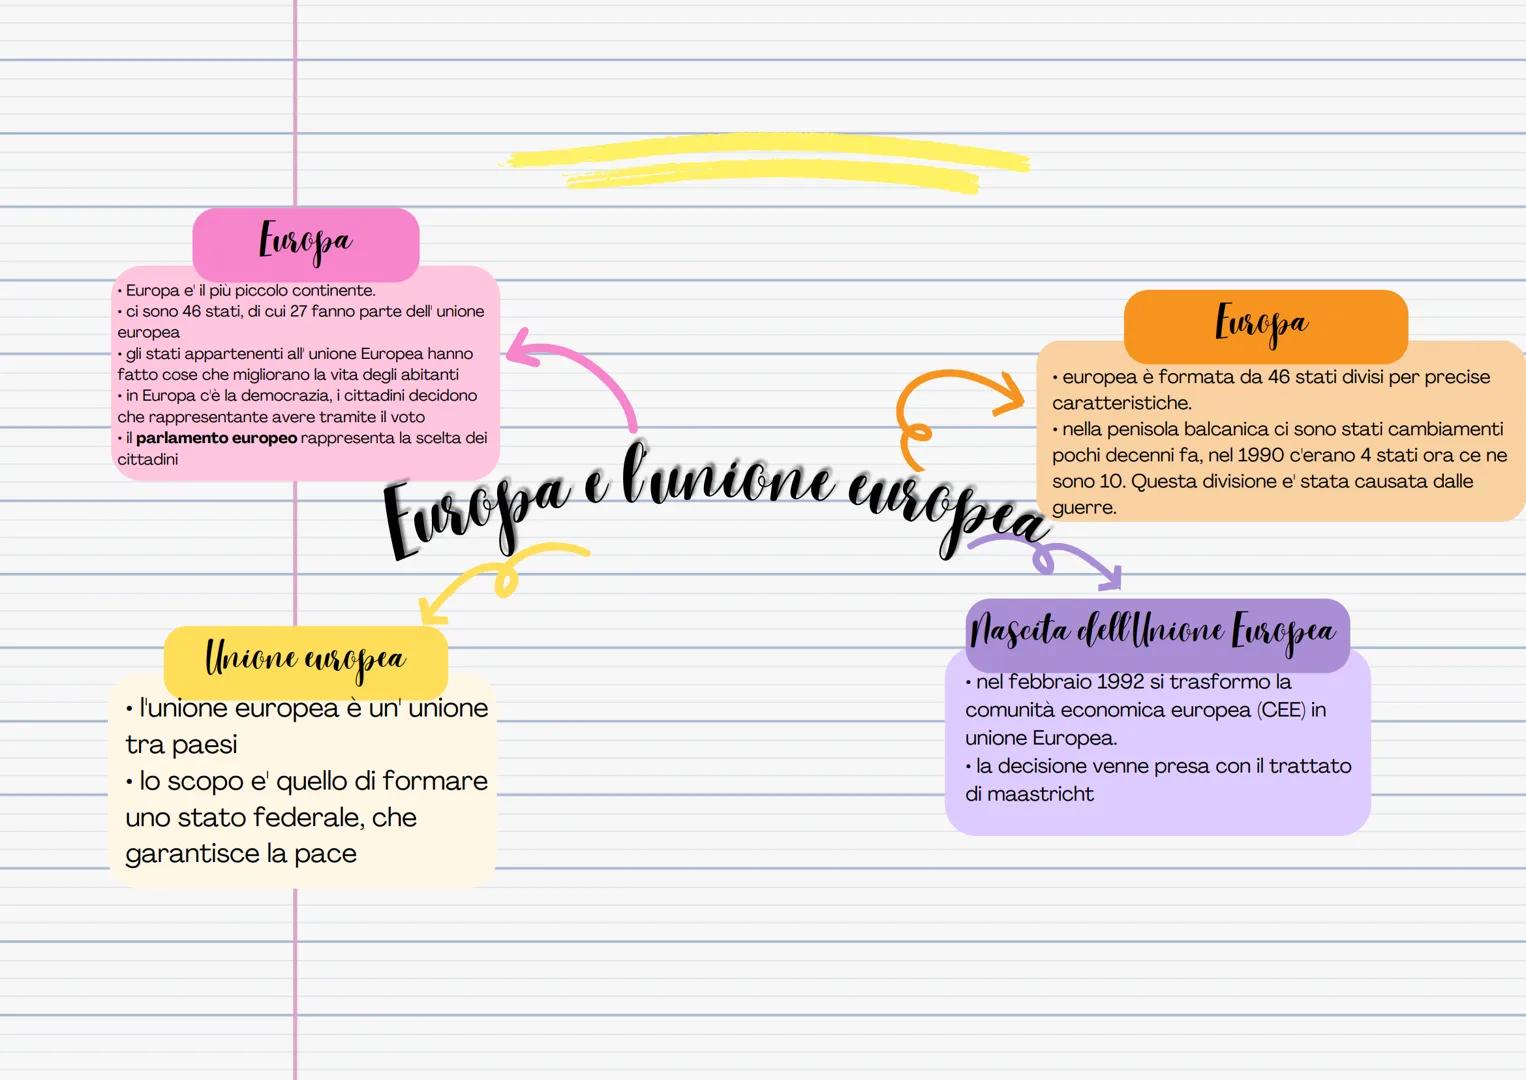 Europa
• Europa e' il più piccolo continente.
• ci sono 46 stati, di cui 27 fanno parte dell' unione
europea
• gli stati appartenenti all' unione Europea hanno
fatto cose che migliorano la vita degli abitanti
• in Europa c'è la democrazia, i cittadini decidono
che rappresentante avere tramite il voto
• il parlamento europeo rappresenta la scelta dei
cittadini
Europa
• europea è formata da 46 stati divisi per precise
caratteristiche.
• nella penisola balcanica ci sono stati cambiamenti
pochi decenni fa, nel 1990 c'erano 4 stati ora ce ne
sono 10. Questa divisione e' stata causata dalle
guerre.
Europa e l'unione europea
Unione europea
• l'unione europea è un' unione
tra paesi
• lo scopo e' quello di formare
uno stato federale, che
garantisce la pace
Nascita dell'Unione Europea
• nel febbraio 1992 si trasformo la
comunità economica europea (CEE) in
unione Europea.
• la decisione venne presa con il trattato
di maastricht